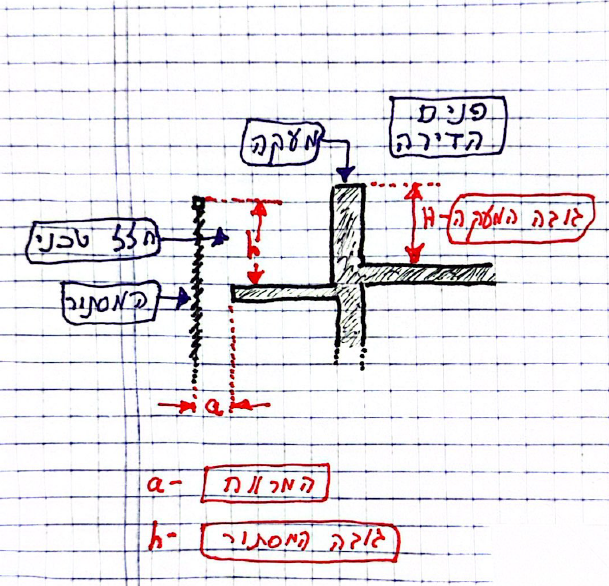 פנים
הדירה
מעקה
H - גובה המעקה
h
חלל טכני
המסתור
a
a - המרווח
h - גובה המסתור